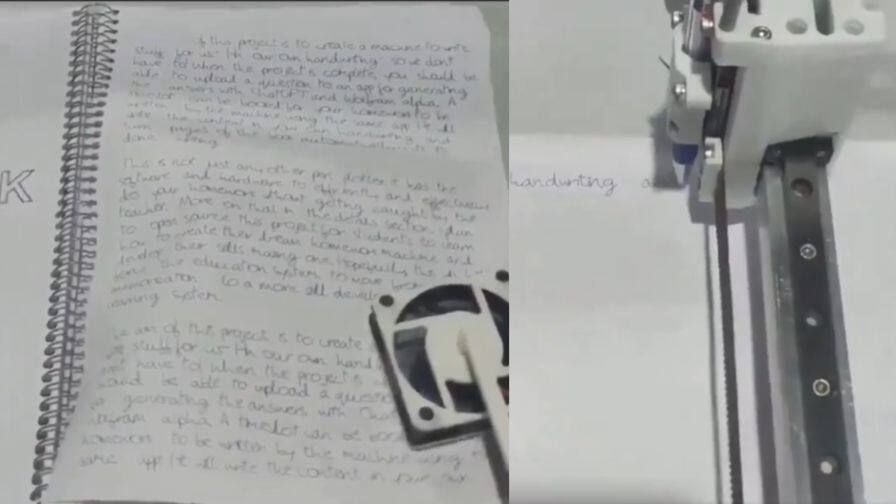 K
of this project is to create a machine to write
stuff for us in our own handwriting so we dont
have to when the project's complete, you should be
able to upload a question to an app for generating
the answers with ChatGPT and Wolfram alpha. A
can be booked for your homework to be
written by the machine using the same app
the content in your own handwriting and
pages of the book automatically
done
This is not just any other pen plotter it has the
software and hardware to efficiently and effectively
do your homework without getting caught by the
teacher. More on that in the details section. I plan
to open source this project for students to learn
how to create their dream homework machine and
develop their skills making one hopefully this
the education system to move from
memorization to a more skill
learning system
aim of this project is to create
stuff for us in our own hand
have to when the project's
be able to upload a question
generating the answers with
alpha. A timeslot can be
homework to be written by the machine using
same app it ll write the content in your own
handwriting a